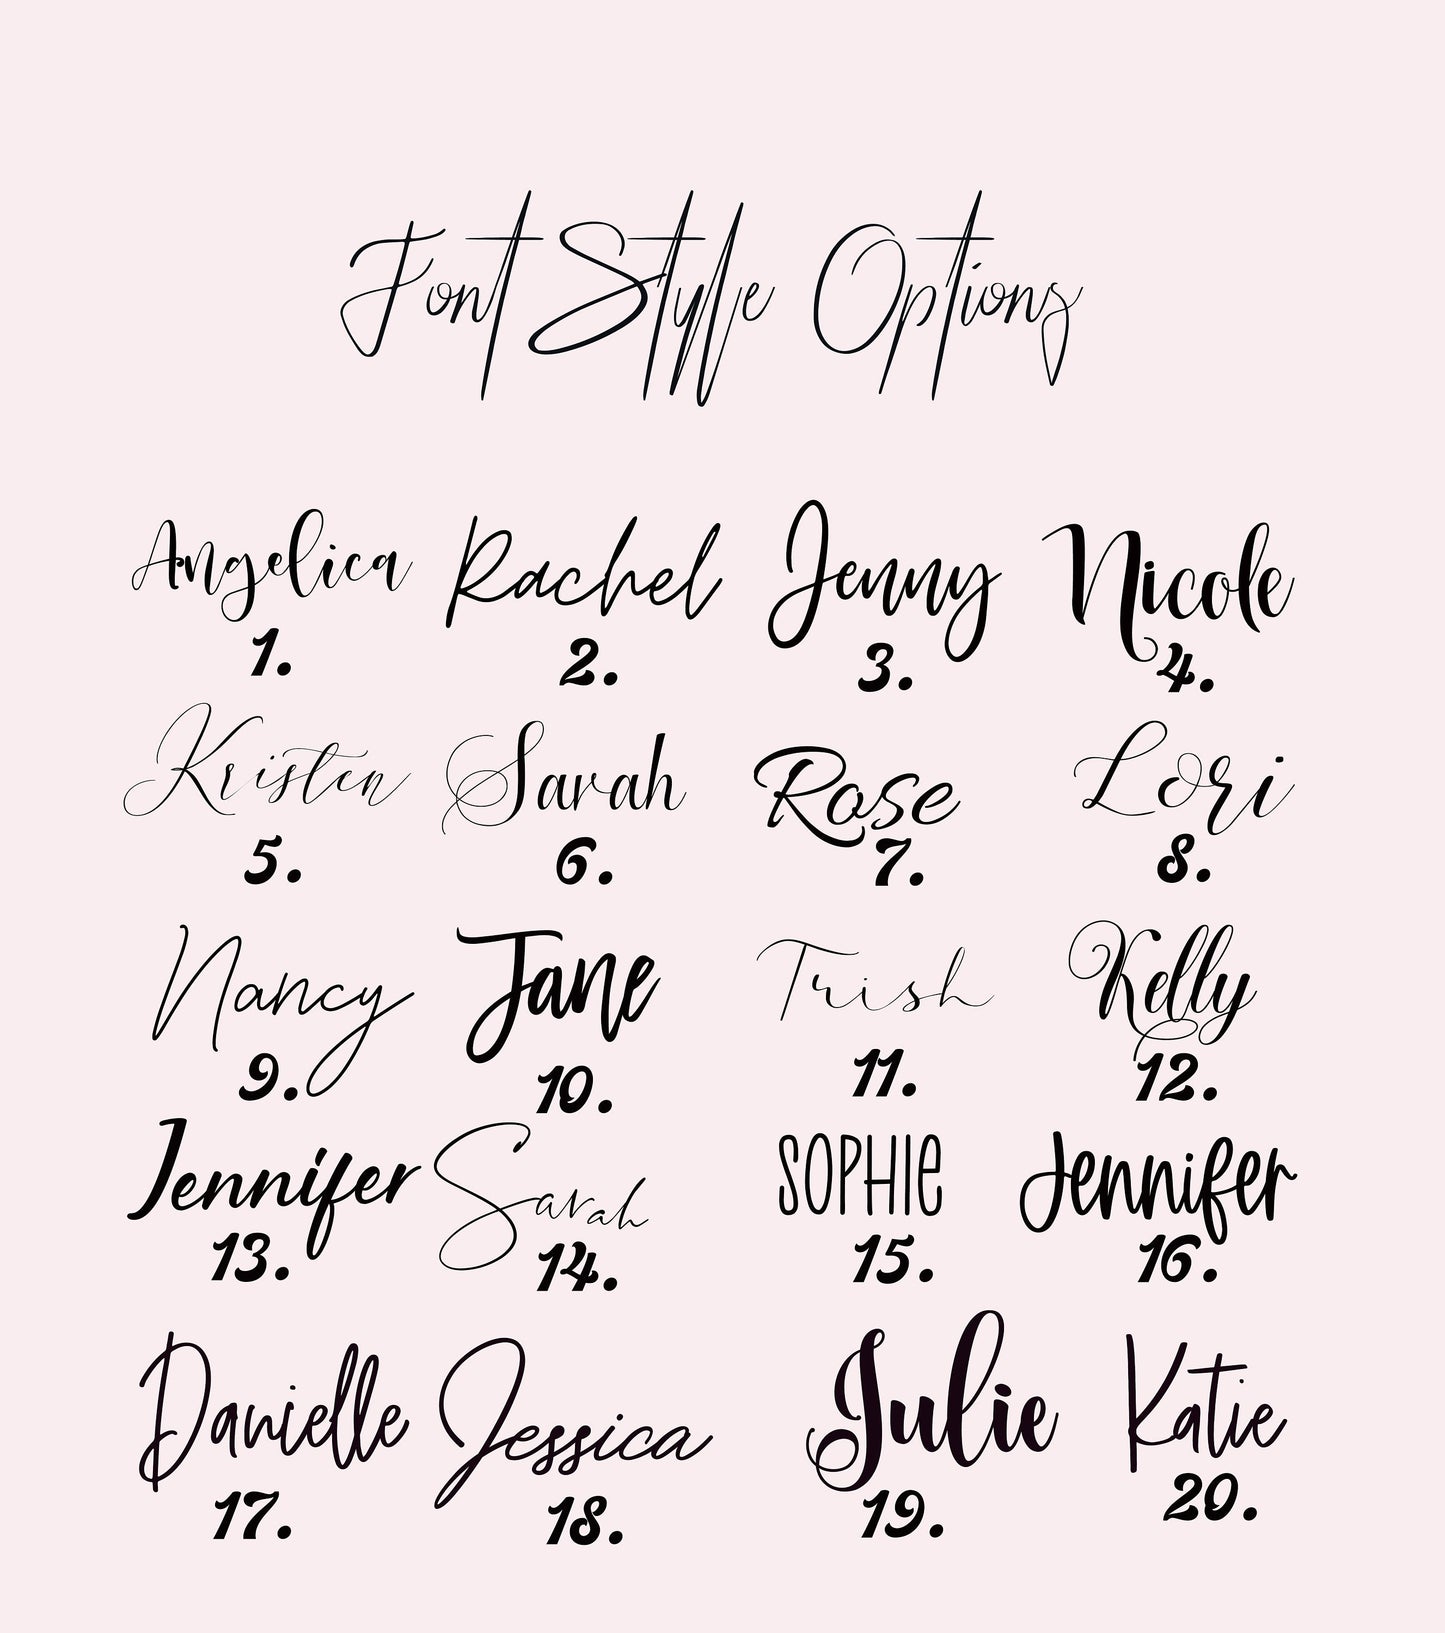 Font Style Options
Angelica Rachel Jenny Nicole
1. 2. 3. 4.
Kristen Sarah Rose Lori
5. 6. 7. 8.
Nancy Jane Trish Kelly
9. 10. 11. 12.
Jennifer Sarah SOPHIE Jennifer
13. 14. 15. 16.
Danielle Jessica Julie Katie
17. 18. 19. 20.